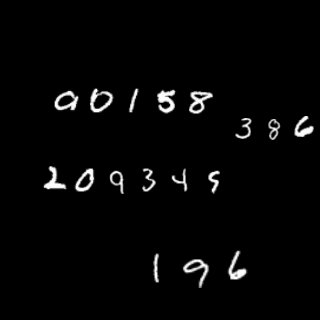 00158
386
209345
196